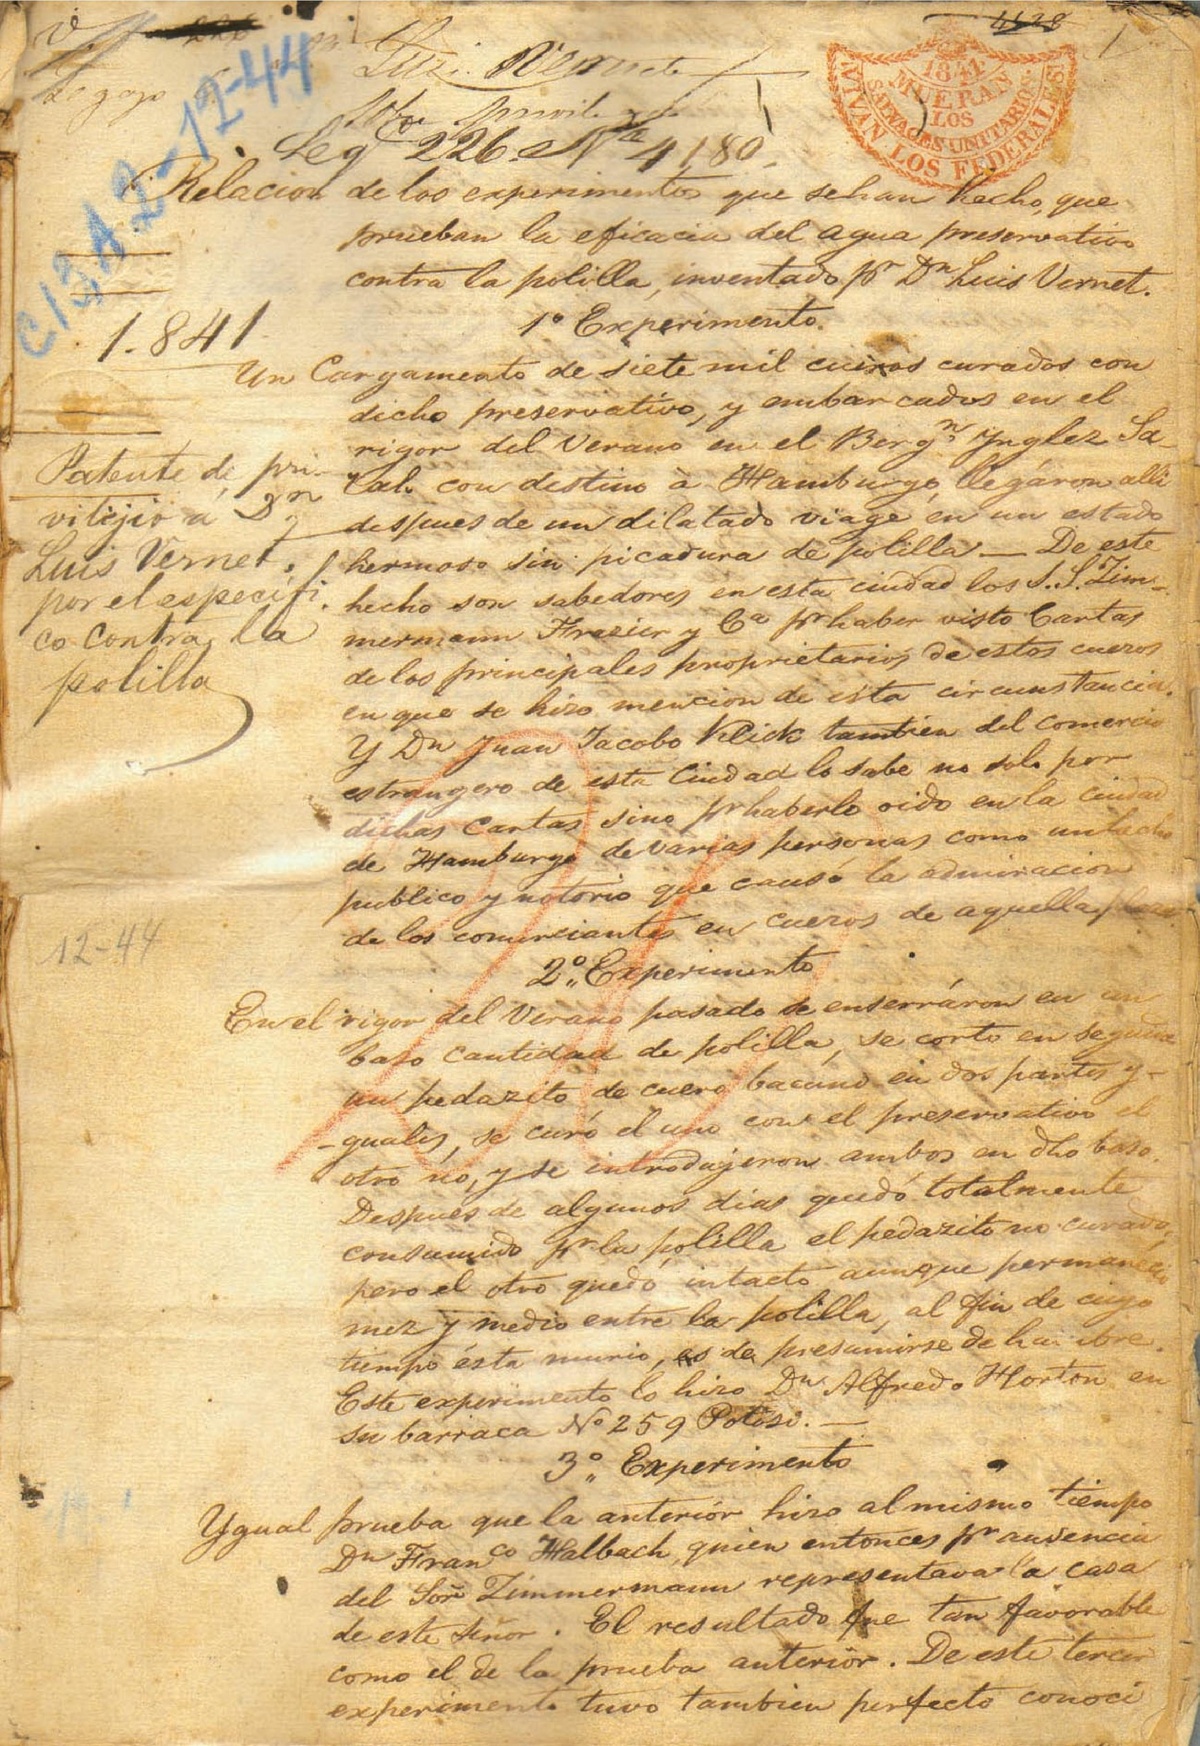 4128
Luis Vernet
sobre privilegio
Leg.º 226. Nº 4180.
1841
MUERAN
LOS
SALVAGES UNITARIOS
VIVAN LOS FEDERALES
C13A2-12-44
Relacion de los experimentos que se han hecho, que
prueban la eficacia del agua preservativo
contra la polilla, inventado pr Dn Luis Vernet.
1.841
1º Experimento.
Un Cargamento de siete mil cueros curados con
dicho preservativo, y embarcados en el
rigor del Verano en el Bergn Ynglez Sa-
rah con destino à Hamburgo, llegáron alli
despues de un dilatado viage en un estado
hermoso sin picadura de polilla — De este
hecho son sabedores en esta ciudad los S.S. Zim-
mermann Frazier y Ca pr haber visto Cartas
de los principales proprietarios de estos cueros
en que se hizo mencion de esta circunstancia.
Y Dn Juan Jacobo Klick tambien del comercio
estrangero de esta Ciudad lo sabe no solo por
dichas Cartas sino pr haberlo oido en la ciudad
de Hamburgo de varias personas como un hecho
publico y notorio que causó la admiracion
de los comerciantes en cueros de aquella plaza
Patente de pri-
vilejio á Dn
Luis Vernet.
por el especifi
co contra la
polilla
12-44
2º Experimento
En el rigor del Verano pasado se enserráron en un
baso cantidad de polilla, se corto en seguida
un pedazito de cuero bacuno en dos partes y-
-guales, se curó el uno con el preservativo el
otro no, y se introdujeron ambos en dho baso.
Despues de algunos dias quedó totalmente
consumido pr la polilla el pedazito no curado,
pero el otro quedó intacto aunque permaneció
mez y medio entre la polilla, al fin de cuyo
tiempo ésta murio, es de presumirse de hambre.
Este experimento lo hizo Dn Alfredo Horton en
su barraca No 259 Potosi. —
3º Experimento
Ygual prueba que la anteriór hizo al mismo tiempo
Dn Franco Halbach, quien entonces pr ausencia
del Sor Zimmermann representava la casa
de este señor. El resultado fue tan favorable
como el de la prueba anteriór. De este tercer
experimento tuvo tambien perfecto conoci